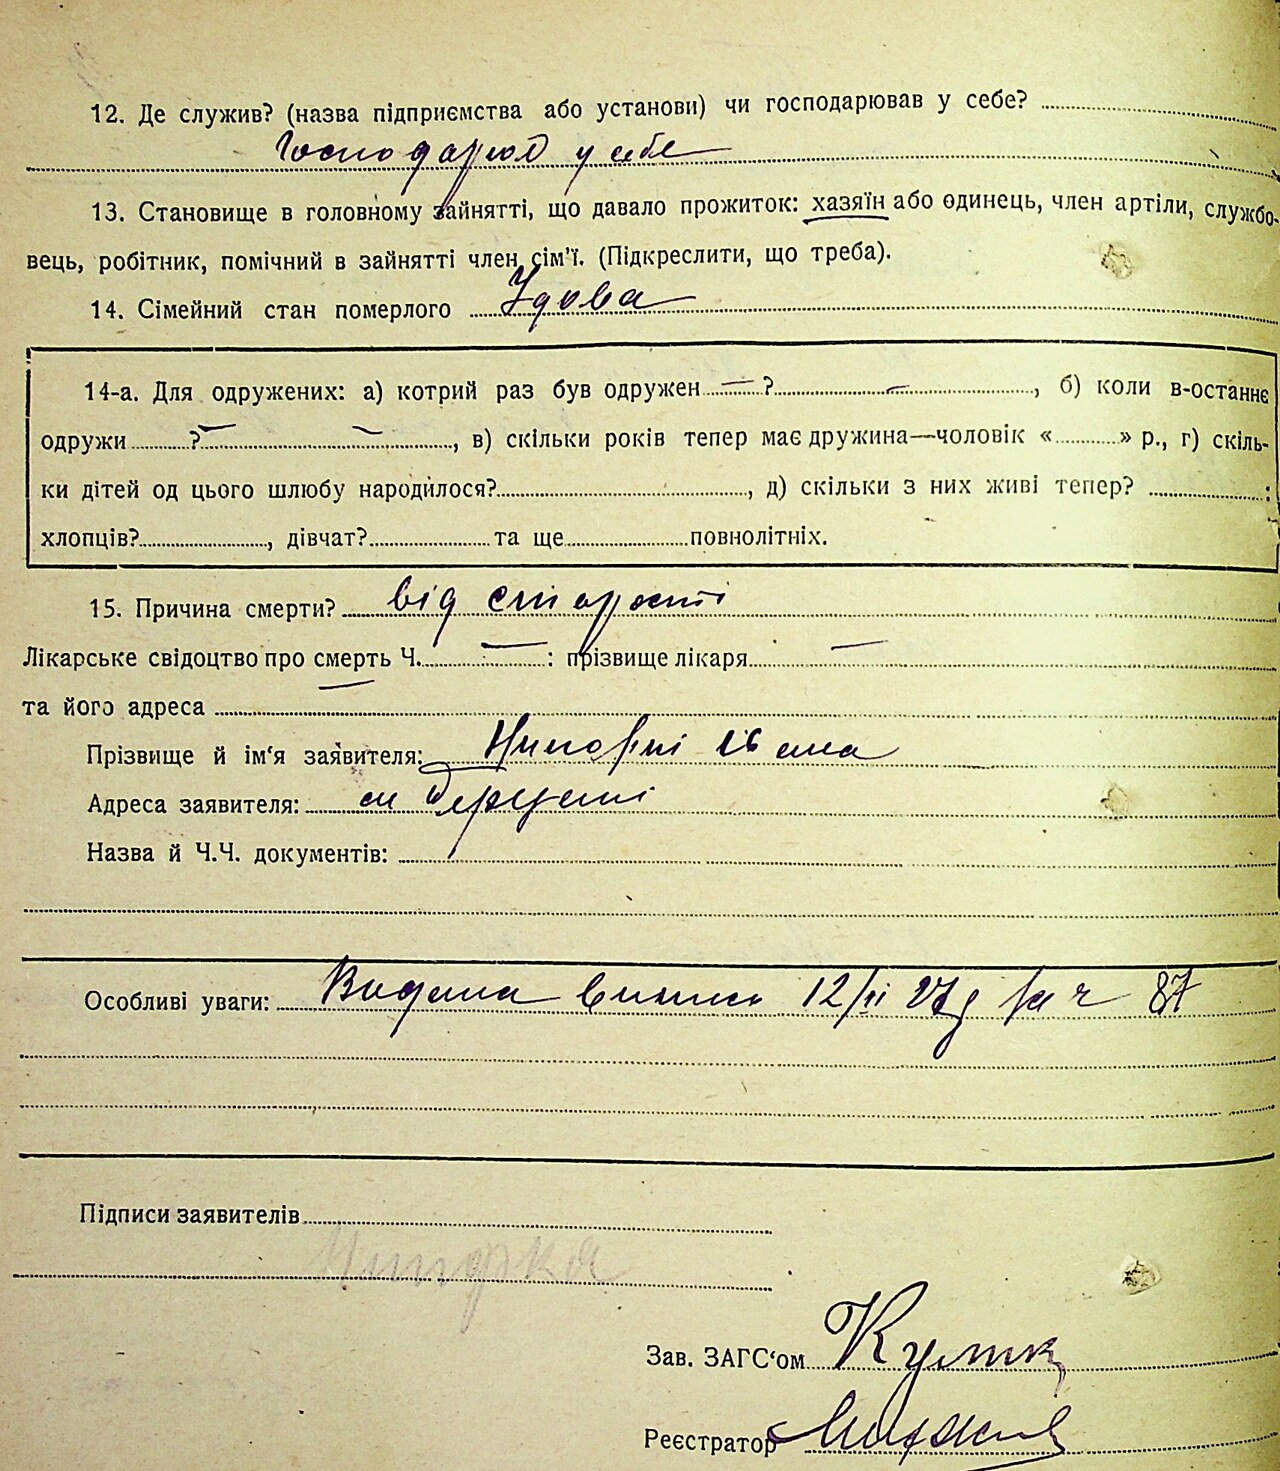 12. Де служив? (назва підприємства або установи) чи господарював у себе?
Господарює у себе
13. Становище в головному зайнятті, що давало прожиток: хазяїн або одинець, член артіли, службо-
вець, робітник, помічний в зайнятті член сім'ї. (Підкреслити, що треба).
14. Сімейний стан померлого Удова
14-а. Для одружених: а) котрий раз був одружен — ? —, б) коли в-останнє
одружи ? — —, в) скільки років тепер має дружина—чоловік « » р., г) скіль-
ки дітей од цього шлюбу народилося? , д) скільки з них живі тепер? :
хлопців? , дівчат? та ще повнолітніх.
15. Причина смерти? від старости
Лікарське свідоцтво про смерть Ч. — : прізвище лікаря —
та його адреса —
Прізвище й ім'я заявителя:
Адреса заявителя:
Назва й Ч.Ч. документів:
Особливі уваги: Видана випись 12/II 27 за ч 87
Підписи заявителів
Зав. ЗАГС'ом
Реєстратор